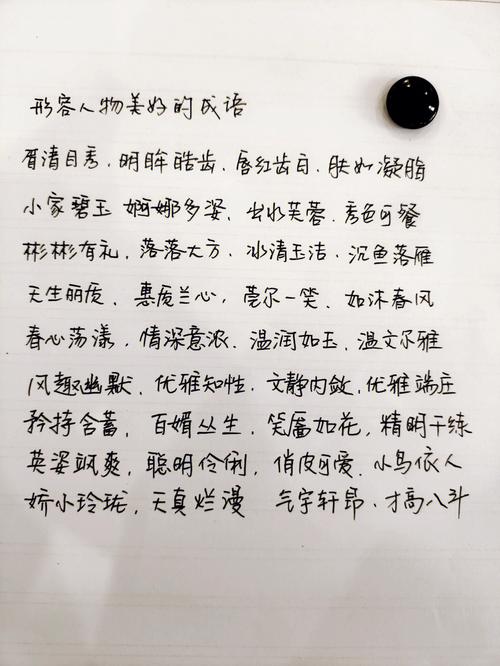 形容人物美好的成语
眉清目秀、明眸皓齿、唇红齿白、肤如凝脂
小家碧玉 婀娜多姿、出水芙蓉、秀色可餐
彬彬有礼、落落大方、冰清玉洁、沉鱼落雁
天生丽质、蕙质兰心、莞尔一笑、如沐春风
春心荡漾、情深意浓、温润如玉、温文尔雅
风趣幽默、优雅知性、文静内敛、优雅端庄
矜持含蓄、百媚丛生、笑靥如花、精明干练
英姿飒爽、聪明伶俐、俏皮可爱、小鸟依人
娇小玲珑、天真烂漫 气宇轩昂、才高八斗